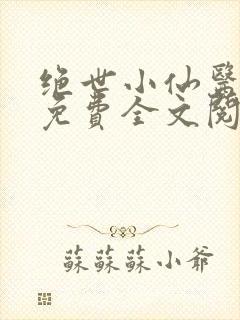 绝世小仙醫
免費全文閱
蘇蘇蘇小爺